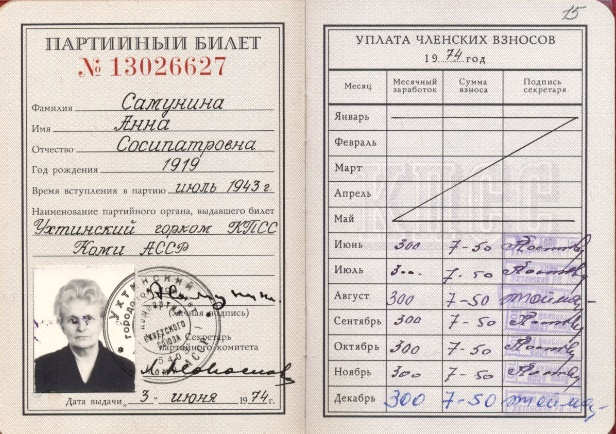 ПАРТИЙНЫЙ БИЛЕТ
№ 13026627
Фамилия Самунина
Имя Анна
Отчество Сосипатровна
Год рождения 1919
Время вступления в партию июль 1943 г.
Наименование партийного органа, выдавшего билет
Ухтинский горком КПСС
Коми АССР
(личная подпись)
Секретарь
партийного комитета
Дата выдачи „3“ июня 1974 г.
15
УПЛАТА ЧЛЕНСКИХ ВЗНОСОВ
1974 год
Месяц Месячный заработок Сумма взноса Подпись секретаря
Январь
Февраль
Март
Апрель
Май
Июнь 300 7-50
Июль 300 7-50
Август 300 7-50
Сентябрь 300 7-50
Октябрь 300 7-50
Ноябрь 300 7-50
Декабрь 300 7-50